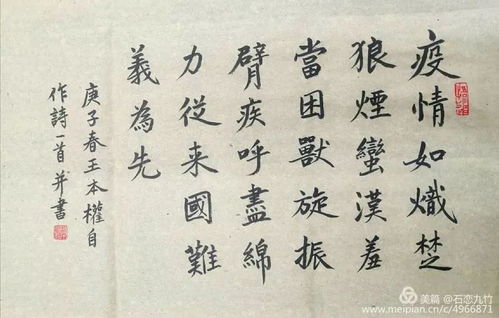 疫情如熾楚
狼煙蠻漢羞
當困獸旋振
臂疾呼盡綿
力從来國難
義為先
庚子春王本權自
作詩一首并書
美篇 @石恋九竹
www.meipian.cn/c/4966871